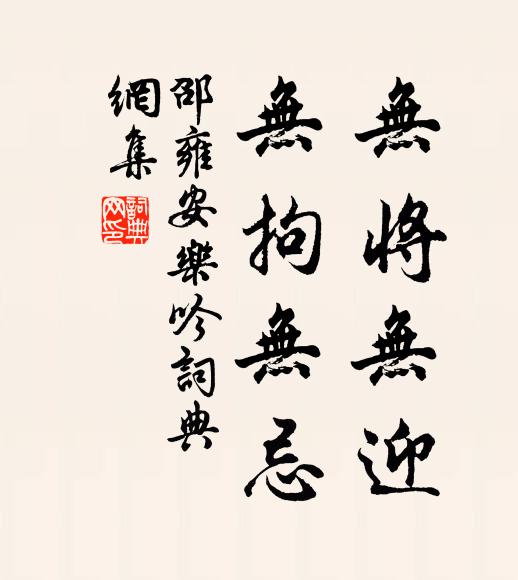 無將無迎
無拘無忌
邵雍安樂吟詞典
網集
詞典
网印